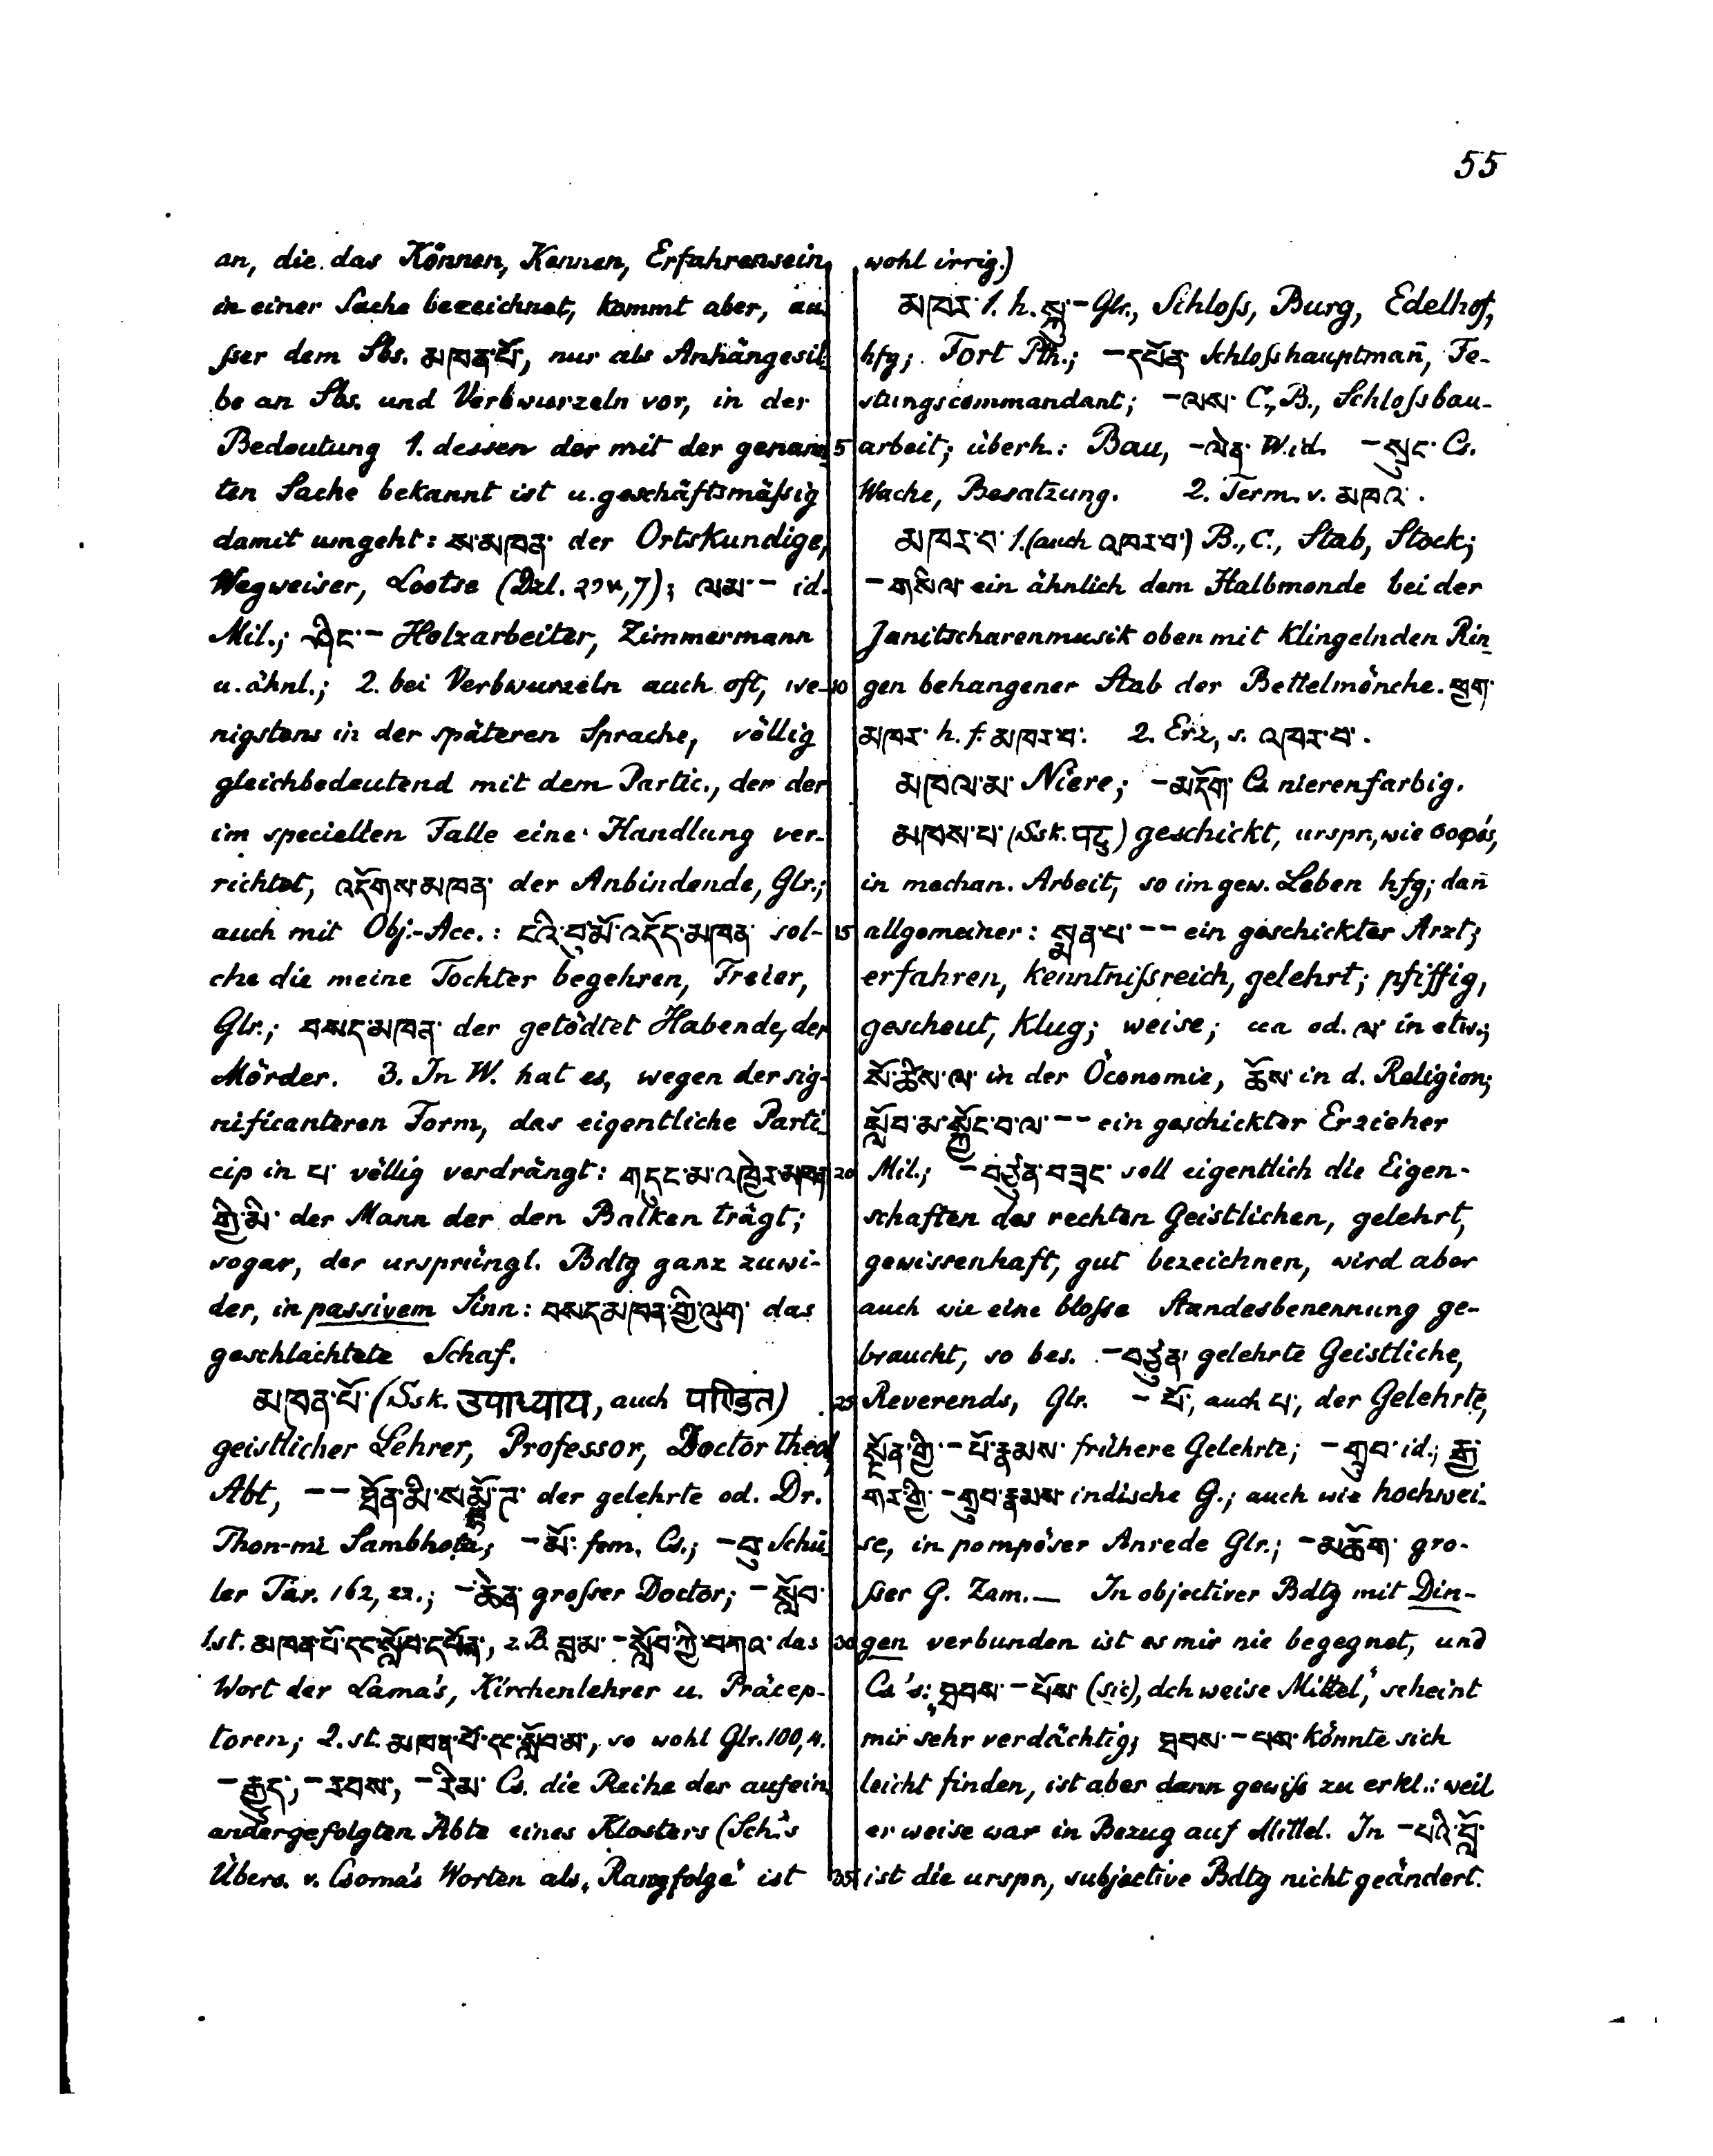 55
an, die das Können, Kennen, Erfahrensein
in einer Sache bezeichnet, kommt aber, au
sser dem Sbs. མཁན་པོ་, nur als Anhängesil
be an Sbs. und Verbwurzeln vor, in der
Bedeutung 1. dessen der mit der genann
ten Sache bekannt ist u. geschäftsmäßig
damit umgeht: ས་མཁན་ der Ortskundige,
Wegweiser, Lootse (Dzl. 7); ལམ་ – id.
Mil.; ཤིང་ – Holzarbeiter, Zimmermann
u. ähnl.; 2. bei Verbwurzeln auch oft, we-
nigstens in der späteren Sprache, völlig
gleichbedeutend mit dem Partic., der der
im speciellen Falle eine Handlung ver-
richtet, འདོགས་མཁན་ der Anbindende, Glr.;
auch mit Obj.-Acc.: ངའི་བུ་མོ་འདོད་མཁན་ sol-
che die meine Tochter begehren, Freier,
Glr.; བསད་མཁན་ der getödtet Habende, der
Mörder. 3. In W. hat es, wegen der sig-
nificanteren Form, das eigentliche Parti
cip in པ་ völlig verdrängt: གདུང་མ་འཁྱེར་མཁན
གྱི་མི་ der Mann der den Balken trägt;
sogar, der ursprüngl. Bdtg ganz zuwi-
der, in passivem Sinn: བསད་མཁན་གྱི་ལུག་ das
geschlachtete Schaf.
མཁན་པོ་ (Ssk. उपाध्याय, auch पण्डित)
geistlicher Lehrer, Professor, Doctor theol,
Abt, – – ཐོན་མི་སམ་བྷོ་ཊ་ der gelehrte od. Dr.
Thon-mi Sambhota; – མོ་ fem. Cs.; – བུ་ Schü
ler Tar. 162, 22.; – ཆེན་ grosser Doctor; – སློབ་
1. st. མཁན་པོ་དང་སློབ་དཔོན་, z. B. བླ་མ་ – སློབ་ཀྱི་བཀའ་ das
Wort der Lama's, Kirchenlehrer u. Präcep-
toren; 2. st. མཁན་པོ་དང་སློབ་མ་, so wohl Glr. 100, 4.
– རྒྱུད་, – རབས་, – རིམ་ Cs. die Reihe der aufein
andergefolgten Äbte eines Klosters (Sch.'s
Übers. v. Csoma's Worten als „Rangfolge" ist
wohl irrig.)
མཁར་ 1. h. སྐུ་ – Glr., Schloss, Burg, Edelhof,
hfg; Fort Pth.; – དཔོན་ Schlosshauptmañ, Fe-
stungscommandant; – ལས་ C., B., Schlossbau-
5 arbeit; überh.: Bau, – ལེན་ W. id. – སྲུང་ Cs.
Wache, Besatzung. 2. Term. v. མཁའ་.
མཁར་བ་ 1. (auch འཁར་བ་) B., C., Stab, Stock;
– གསིལ་ ein ähnlich dem Halbmonde bei der
Janitscharenmusik oben mit klingelnden Rin
10 gen behangener Stab der Bettelmönche. ཕྱག་
མཁར་ h. f. མཁར་བ་. 2. Erz, s. འཁར་བ་.
མཁལ་མ་ Niere; – མདོག་ Cs nierenfarbig.
མཁས་པ་ (Ssk. पटु) geschickt, urspr., wie σοφός,
in mechan. Arbeit, so im gew. Leben hfg; dañ
15 allgemeiner: སྨན་པ་ – – ein geschickter Arzt;
erfahren, kenntnißreich, gelehrt; pfiffig,
gescheut, klug; weise; od. ལ་ in etw.;
སོ་ཚིས་ལ་ in der Öconomie, ཆོས་ in d. Religion;
སློབ་མ་སྐྱོང་བ་ལ་ – – ein geschickter Erzieher
20 Mil.; – བཙུན་བཟང་ soll eigentlich die Eigen-
schaften des rechten Geistlichen, gelehrt,
gewissenhaft, gut bezeichnen, wird aber
auch wie eine blosse Standesbenennung ge-
braucht, so bes. – བཙུན་ gelehrte Geistliche,
25 Reverends, Glr. – པོ་, auch པ་, der Gelehrte,
སྔོན་གྱི་ – པོ་རྣམས་ frühere Gelehrte; – གྲུབ་ id.; རྒྱ་
གར་གྱི་ – གྲུབ་རྣམས་ indische G.; auch wie hochwei-
se, in pompöser Anrede Glr.; – མཆོག་ gro-
sser G. Zam. — In objectiver Bdtg mit Din-
30 gen verbunden ist es mir nie begegnet, und
Cs's: „ཐབས་ – པོས་ (sic), dch weise Mittel," scheint
mir sehr verdächtig; ཐབས་ – པས་ könnte sich
leicht finden, ist aber dann gewiß zu erkl.: weil
er weise war in Bezug auf Mittel. In – པའི་བློ་
35 ist die urspr., subjective Bdtg nicht geändert.